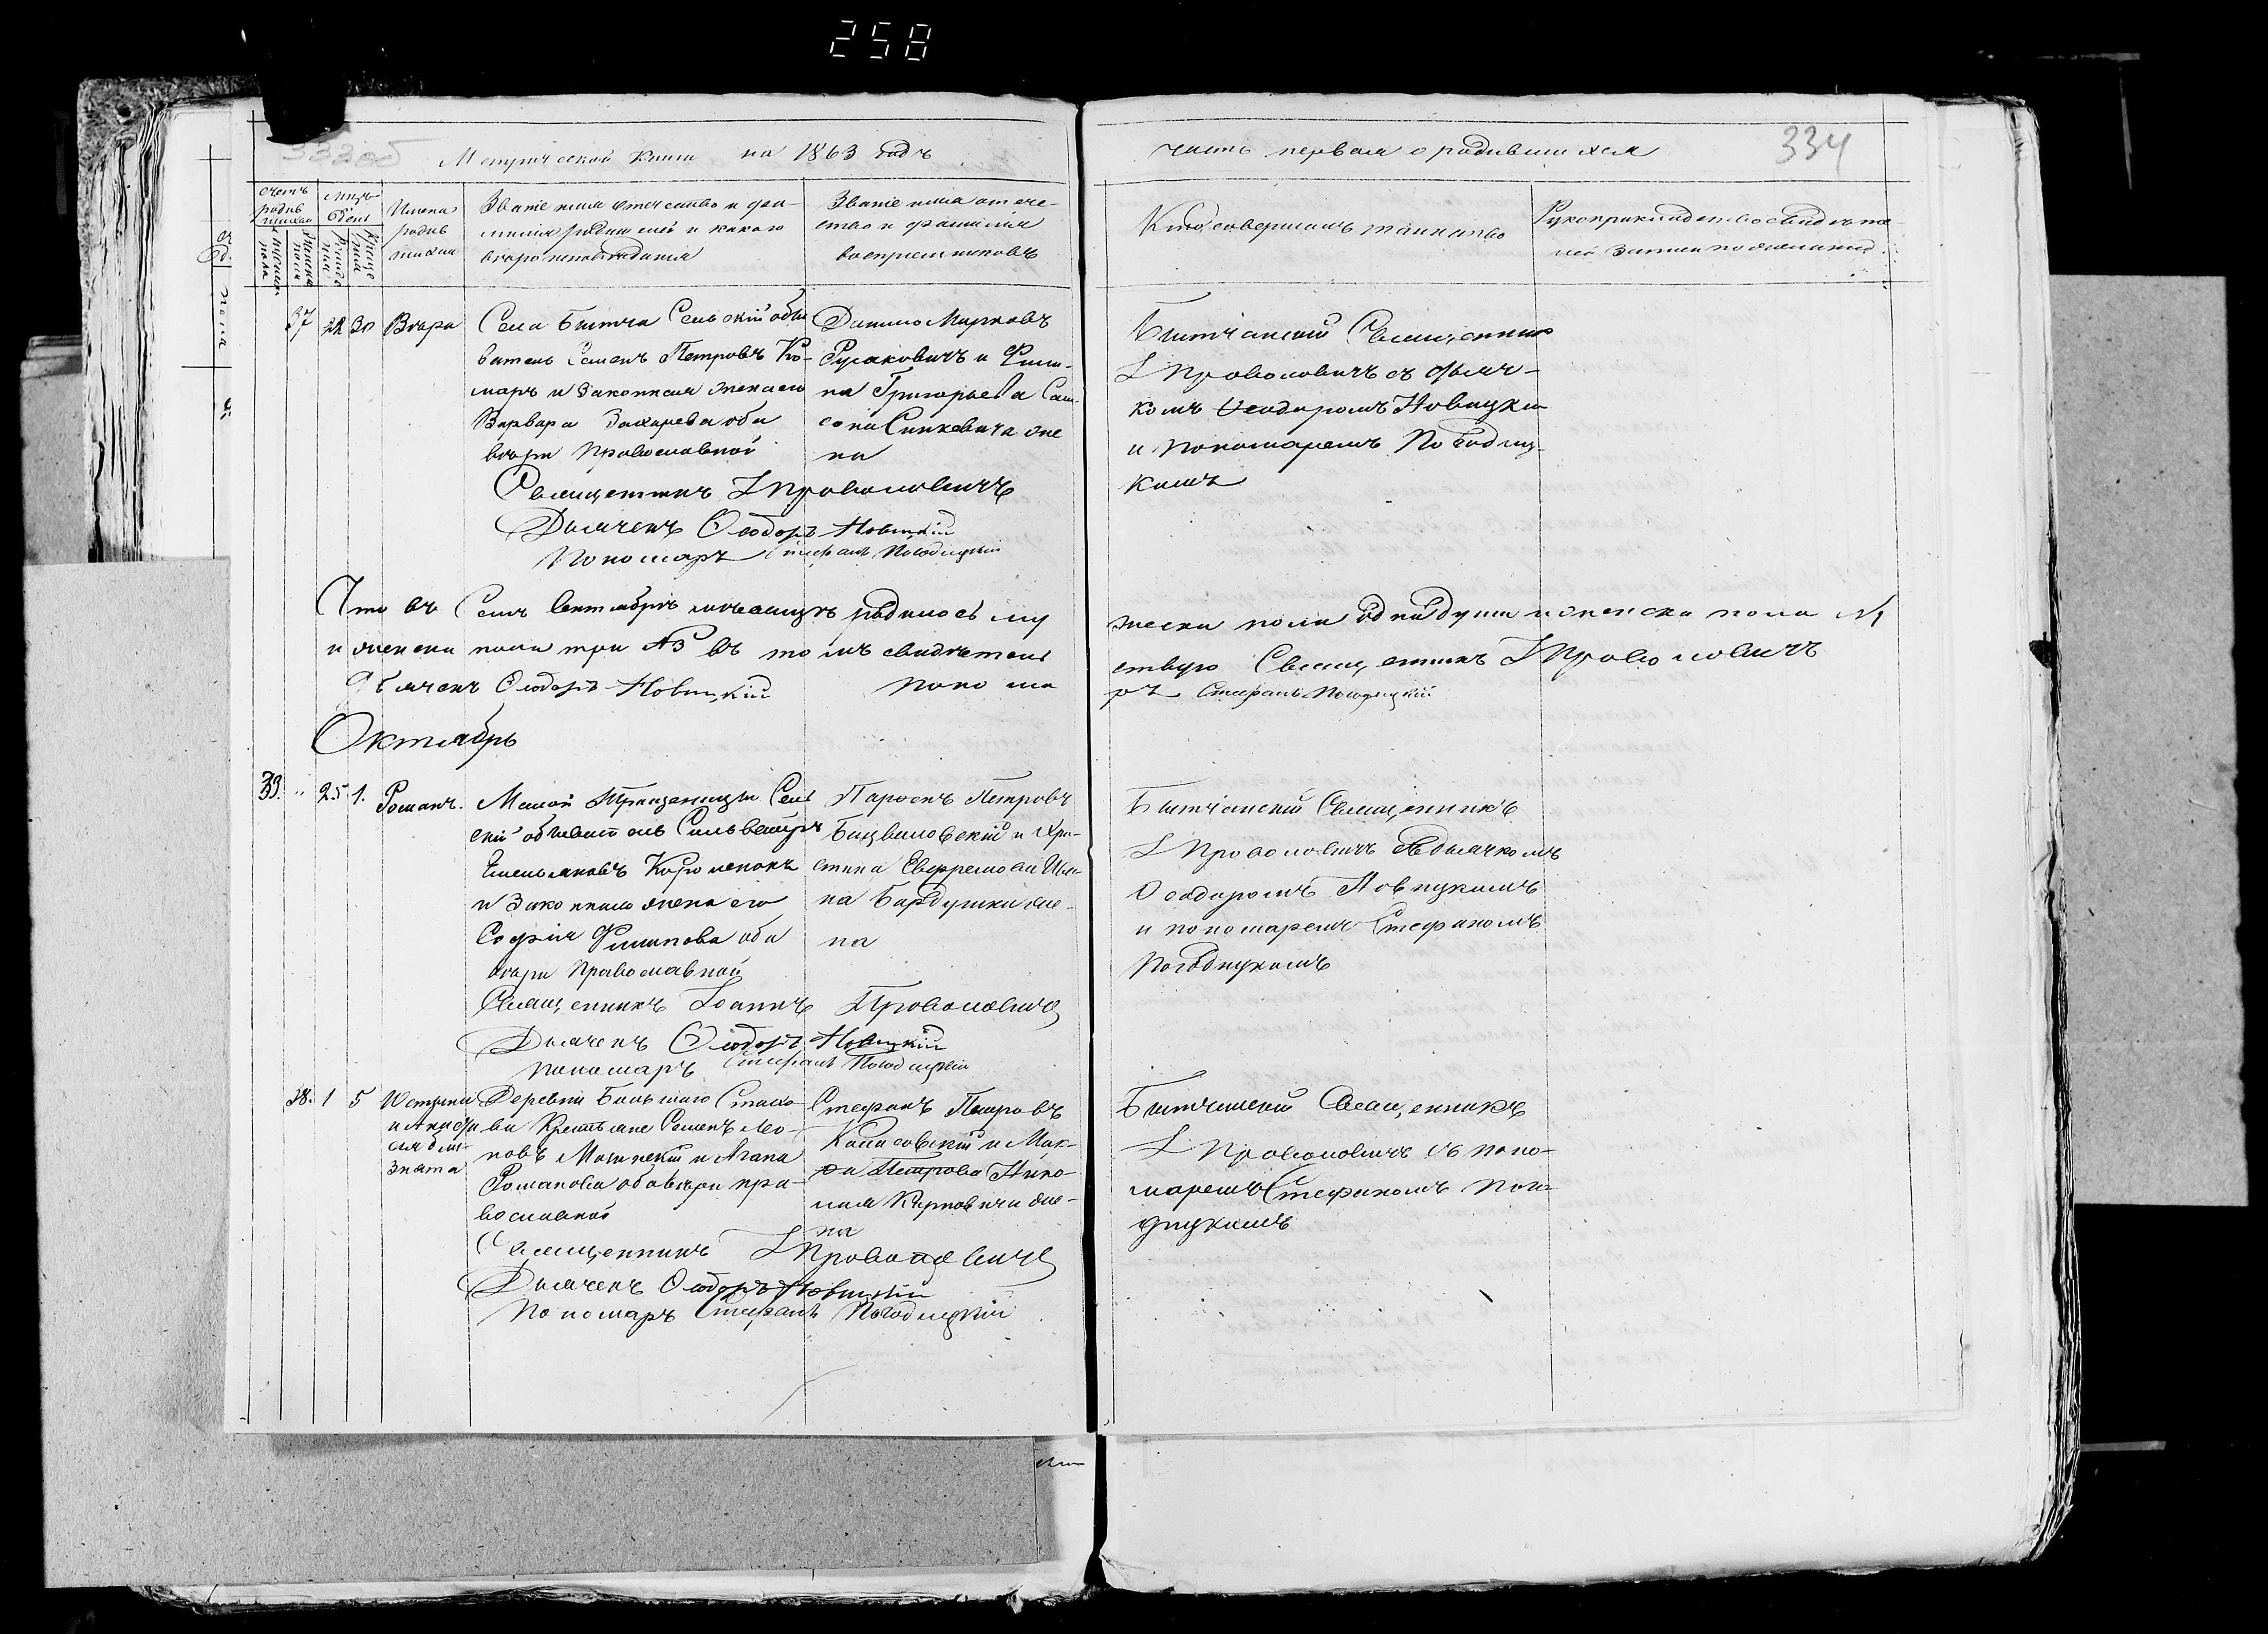 258
333об Метрической книги на 1863 годъ
часть первая о родившихся 334
счетъ родившихся
мужеска пола
женска пола
Мѣсяцъ и день
рожденія
крещенія
Имена родившихся
Званіе имя отечество и фа-
милія родителей и какого
вѣроисповѣданія
Званіе имя отече-
ство и фамилія
воспріемниковъ
Кто совершалъ таинство
Рукоприкладство свидѣте-
лей записи по желанію
37 28 30 Вѣра
Села Битча Сельскій обы
ватель Семенъ Петровъ Ко-
маръ и Законная жена его
Варвара Захарева оба
вѣры Православной
Данило Марковъ
Русаковичъ и Фили-
на Григорьева Сам-
сона Синкевича же
на
Битчанскій Священникъ
І Проволовичъ съ дьяч-
комъ Ѳеодоромъ Новицки
и пономаремъ Погодиц-
кимъ
Священникъ І Проволовичъ
Дьячекъ Ѳеодоръ Новицкій
Пономаръ Стефанъ Погодицкій
Что въ Семъ Сентябрѣ мѣсяцѣ родилось му
жеска пола одна душа и женска пола №
и женска пола три №3 въ томъ свидѣтель
ствую Священникъ І Проволовичъ
Дьячекъ Ѳеодоръ Новицкій понома
ръ Стефанъ Погодицкій
Октябрь
39. " 25 1. Романъ.
Малой Тращеницы Сель
скій обыватель Сильвестръ
Емельяновъ Короленокъ
и Законная жена его
Софія Филипова оба
вѣры Православной
Парфенъ Петровъ
Бацвиловскій и Хри-
стина Евфремова Ива-
на Бардушки же-
на
Битчанскій Священникъ
І Проволовичъ съ дьячкомъ
Ѳеодоромъ Новицкимъ
и пономаремъ Стефаномъ
Погодицкимъ
Священникъ Іоаннъ Проволовичъ
Дьячекъ Ѳеодоръ Новицкій
пономаръ Стефанъ Погодицкій
38. 1 5
Деревни Большаго Стахо
ва Крестьяне Семенъ Лео-
новъ и Агапа
Романова оба вѣры пра-
вославной
Стефанъ Петровъ
и Мак-
ра Петрова Нико-
лая Карповича же-
на
Битчанскій Священникъ
І Проволовичъ съ поно-
маремъ Стефаномъ Пого-
дицкимъ
Священникъ І Проволовичъ
Дьячекъ Ѳеодоръ Новицкій
Пономаръ Стефанъ Погодицкій